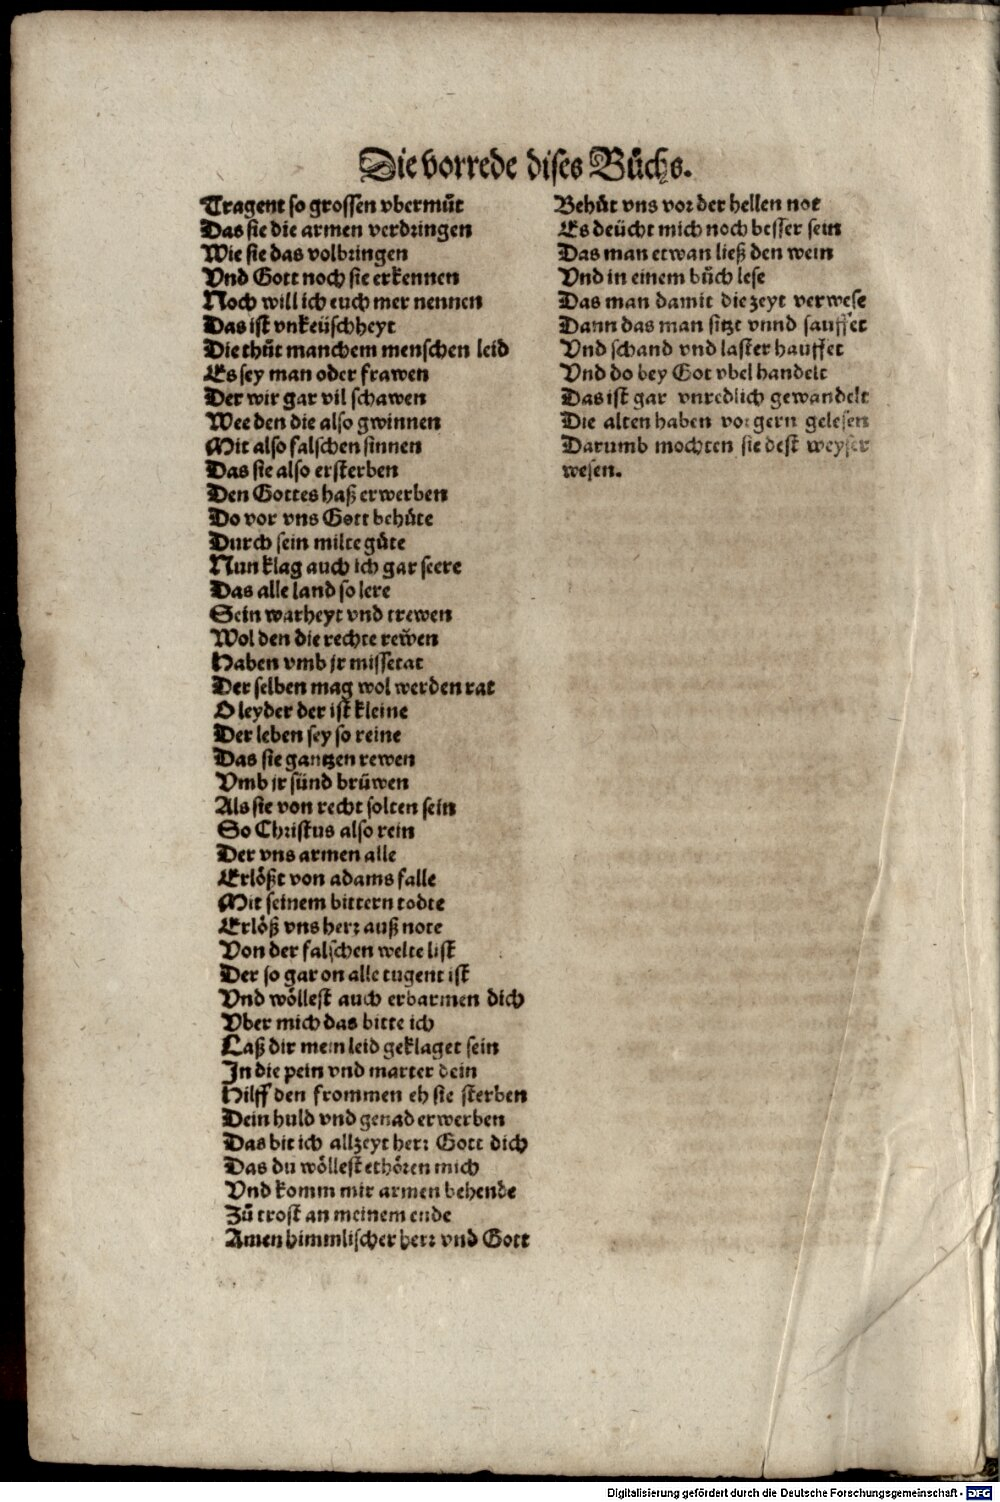 Die vorrede dises Bůchs.
Tragent so grossen vbermůt
Das sie die armen verdringen
Wie sie das volbringen
Vnd Gott noch sie erkennen
Noch will ich euch mer nennen
Das ist vnkeüschheyt
Die thůt manchem menschen leid
Es sey man oder frawen
Der wir gar vil schawen
Wee den die also gwinnen
Mit also falschen sinnen
Das sie also ersterben
Den Gottes haß erwerben
Do vor vns Gott behůte
Durch sein milte gůte
Nun klag auch ich gar seere
Das alle land so lere
Sein warheyt vnd trewen
Wol den die rechte rew̃en
Haben vmb jr missetat
Der selben mag wol werden rat
O leyder der ist kleine
Der leben sey so reine
Das sie gantzen rewen
Vmb ir sünd brüwen
Als sie von recht solten sein
So Christus also rein
Der vns armen alle
Erlößt von adams falle
Mit seinem bittern todte
Erlöß vns herr auß note
Von der falschen welte list
Der so gar on alle tugent ist
Vnd wöllest auch erbarmen dich
Vber mich das bitte ich
Laß dir mein leid geklaget sein
In die pein vnd marter dein
Hilff den frommen eh sie sterben
Dein huld vnd genad erwerben
Das bit ich allzeyt herr Gott dich
Das du wöllest ethören mich
Vnd komm mir armen behende
Zů trost an meinem ende
Amen himmlischer herr vnd Gott
Behůt vns vor der hellen not
Es deücht mich noch besser sein
Das man etwan ließ den wein
Vnd in einem bůch lese
Das man damit die zeyt verwese
Dann das man sitzt vnnd sauffet
Vnd schand vnd laster hauffet
Vnd do bey Got vbel handelt
Das ist gar vnredlich gewandelt
Die alten haben vor gern gelesen
Darumb mochten sie dest weyser
wesen.
Digitalisierung gefördert durch die Deutsche Forschungsgemeinschaft - DFG